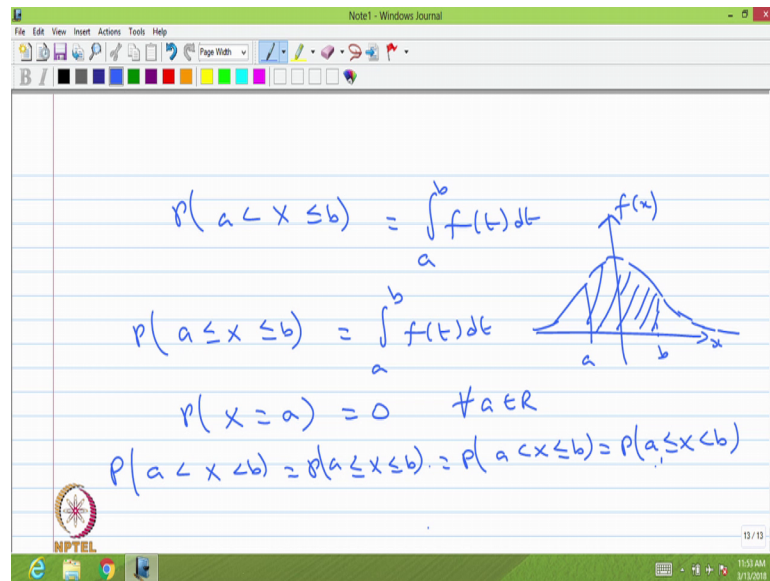 Note1 - Windows Journal
File Edit View Insert Actions Tools Help
Page Width
B I
P( a < X ≤ b) = ∫_a^b f(t) dt
f(x)
P( a ≤ x ≤ b) = ∫_a^b f(t) dt
a b x
P( x = a) = 0 ∀ a ∈ R
P( a < x < b) = P(a ≤ x ≤ b) = P( a < x ≤ b) = P(a ≤ x < b)
NPTEL
13 / 13
11:53 AM
3/13/2018